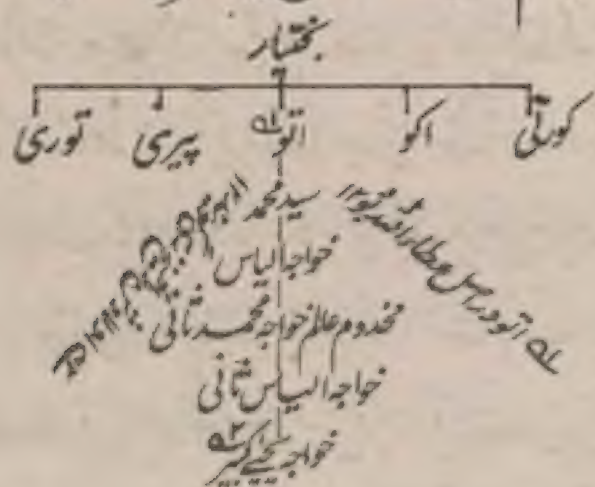 بختیار
کورتی اکو اتو۱؎ پیری توری
سید محمد
خواجہ الیاس
مخدوم عالم خواجہ محمد ثانی
خواجہ الیاس ثانی
خواجہ یحییٰ کبیر۲؎
۱؎ اتو در اصل عطاء اللہ بود ۱۲